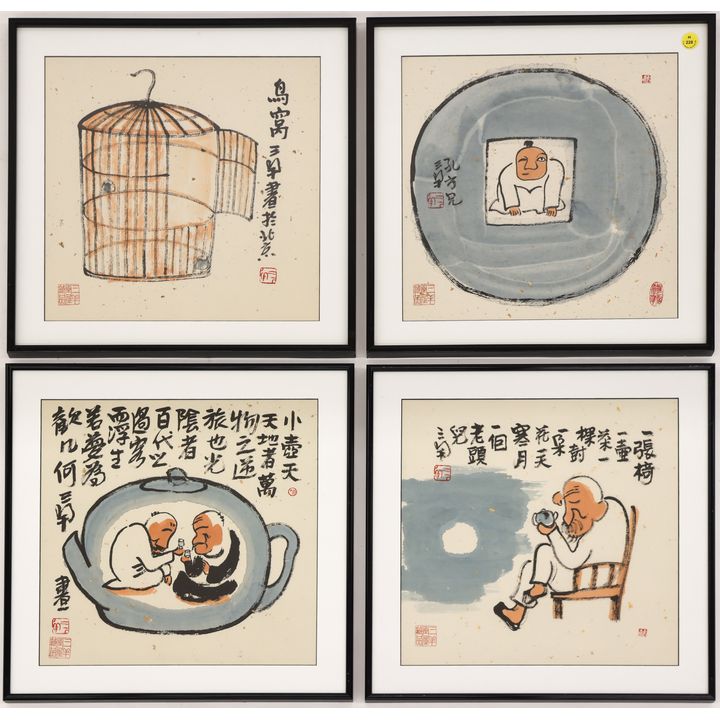 鸟窝
於北京
228
孔方兄
小壺天
天地者萬
物之逆
旅也光
陰者
百代之
過客
而浮生
若夢為
歡几何
畫
一張椅
一壺
茶一
棵樹
一朵
花天
寒月
一個
老頭
兒